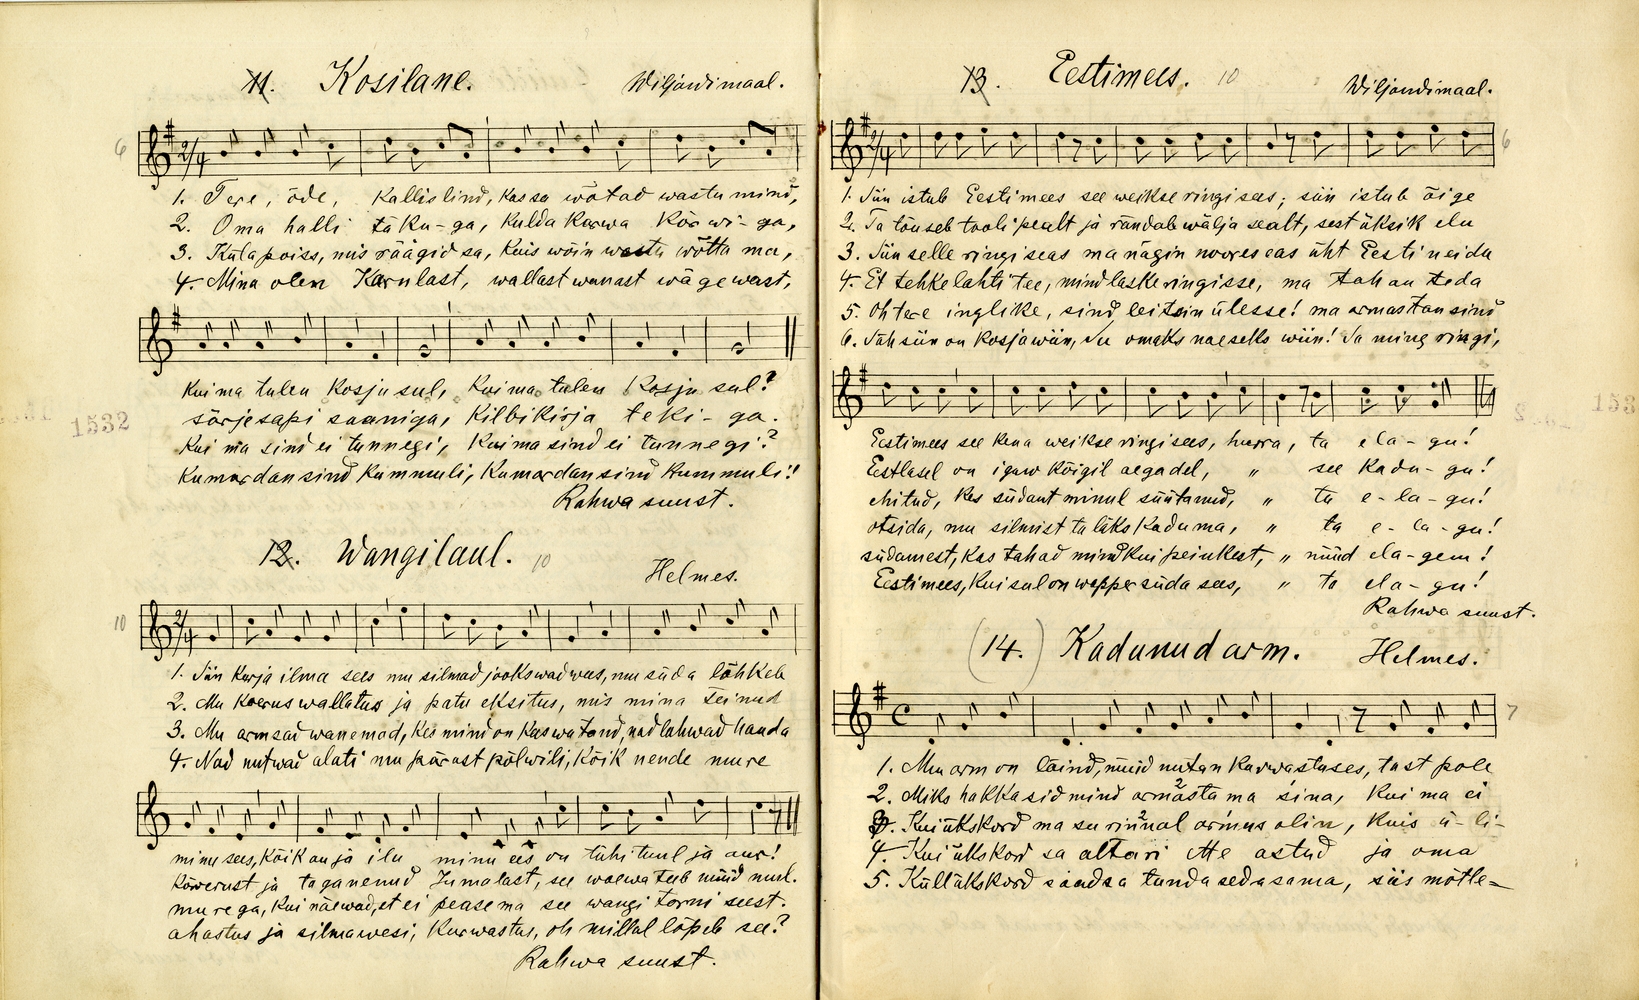 11. Kosilane. Wiljandimaal.
6
1. Tere, õde, kallis lind, kas sa wõtad wastu mind,
2. Oma halli täku-ga, kulda karwa kõrwi-ga,
3. Küla poiss, mis räägid sa, kuis wõin wastu wõtta ma,
4. Mina olen Karulast, wallast wanast wägewast,
kui ma tulen kosja sul, kui ma tulen kosja sul?
särjesapi saaniga, kilbikirja teki-ga.
kui ma sind ei tunnegi, kui ma sind ei tunnegi?
kumardan sind kummuli, kumardan sind kummuli!
Rahwa suust.
1532
12. Wangi laul. 10
Helmes.
10
1. Siin kurja ilma sees mu silmad jookswad wees, mu süda lõhkeb
2. Mu koerus wallatus ja patu eksitus, mis mina teinud
3. Mu armsad wanemad, kes mind on kaswatand, nad lahwad hauda
4. Nad nutwad alati mu pärast põlwili, kõik nende mure
minu sees, kõik au ja ilu minu ees on tühi tuul ja aur!
kõwerust ja taganenud Jumalast, see waewa teeb nüüd mul.
murega, kui näewad, et ei pease ma see wangi torni seest.
ahastus ja silmawesi, kurwastus, oh millal lõpeb see?
Rahwa suust.
13. Eestimees. 10
Wiljandimaal.
6
1. Siin istub Eestimees see weikse ringi sees; siin istub õige
2. Ta tõuseb tooli pealt ja rändab wälja sealt, sest üksik elu
3. Siin selle ringi seas ma nägin noores eas üht Eesti neidu
4. Et tehke lahti tee, mind laske ringisse, ma tahan teda
5. Oh tere inglike, sind leitsin ülesse! ma armastan sind
6. Säh siin on kosjawiin, su omaks naeseks wiin! Sa mine ringi,
Eestimees see kena weikse ringi sees, hurra, ta ela-gu!
Eestlasel on igaw kõigil aegadel, " see kadu-gu!
ehitud, kes südant minul süütanud, " ta e-la-gu!
otsida, mu silmist ta läks kaduma, " ta e-la-gu!
südamest, kas tahad mind kui peiukest, " nüüd ela-gem!
Eestimees, kui sul on wapper süda sees, " ta ela-gu!
Rahwa suust.
153
(14.) Kadunud arm. Helmes.
7
1. Mu arm on läind, nüüd nutan kurwastuses, tast pole
2. Miks hakkasid mind armastama sina, kui ma ei
3. Kui ükskord ma su rinnal armus olin, kuis ü-li-
4. Kui ükskord sa altari ette astud ja oma
5. Küll ükskord saad sa tunda seda sama, siis mõtle=